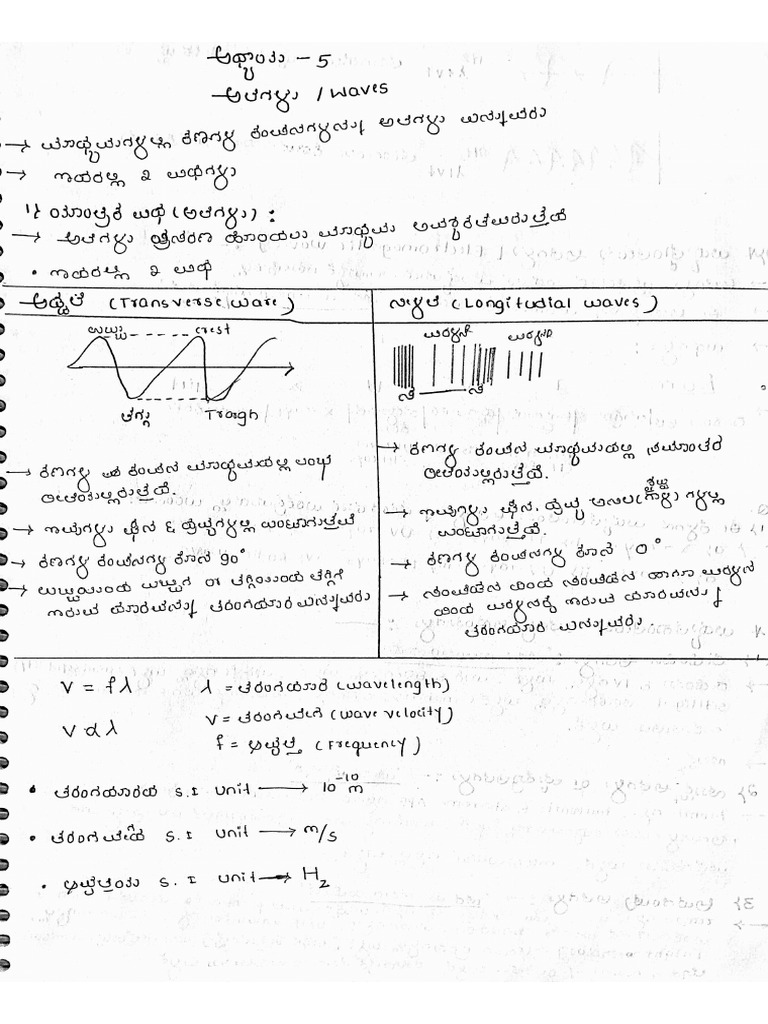 ಅಧ್ಯಾಯ - 5
ಅಲೆಗಳು / Waves
→ ಮಾಧ್ಯಮಗಳಲ್ಲಿ ಕಣಗಳ ಕಂಪನಗಳನ್ನು ಅಲೆಗಳು ಎನ್ನುವರು
→ ಇದರಲ್ಲಿ 2 ವಿಧಗಳು
1) ಯಾಂತ್ರಿಕ ವಿಧ (ಅಲೆಗಳು) :
→ ಅಲೆಗಳು ಪ್ರಸರಣ ಹೊಂದಲು ಮಾಧ್ಯಮ ಅವಶ್ಯಕತೆಯಿರುತ್ತದೆ
• ಇದರಲ್ಲಿ 2 ವಿಧ
ಅಡ್ಡಲೆ (Transverse wave)
ಉಬ್ಬು crest
ತಗ್ಗು Trough
→ ಕಣಗಳ ಕಂಪನ ಮಾಧ್ಯಮದಲ್ಲಿ ಲಂಬ
ರೀತಿಯಲ್ಲಿರುತ್ತದೆ.
→ ಇವುಗಳು ಘನ & ದ್ರವ್ಯಗಳಲ್ಲಿ ಉಂಟಾಗುತ್ತವೆ
→ ಕಣಗಳ ಕಂಪನಗಳ ಕೋನ 90°
→ ಉಬ್ಬುಯಿಂದ ಉಬ್ಬುಗೆ or ತಗ್ಗಿನಿಂದ ತಗ್ಗಿಗೆ
ಇರುವ ದೂರವನ್ನು ತರಂಗದೂರ ಎನ್ನುವರು
ನೀಳಲೆ (Longitudial waves)
ವಿರಳನ ವಿರಳನ
ಸಂ ಸಂ
→ ಕಣಗಳ ಕಂಪನ ಮಾಧ್ಯಮದಲ್ಲಿ ಸಮಾಂತರ
ರೀತಿಯಲ್ಲಿರುತ್ತದೆ.
→ ಇವುಗಳು ಘನ, ದ್ರವ್ಯ ಅನಿಲ ಗಳಲ್ಲಿ
ಉಂಟಾಗುತ್ತವೆ.
→ ಕಣಗಳ ಕಂಪನಗಳ ಕೋನ 0°
→ ಸಂಪೀಡನ ದಿಂದ ಸಂಪೀಡನ ಹಾಗೂ ವಿರಳನ
ದಿಂದ ವಿರಳನಕ್ಕೆ ಇರುವ ದೂರವನ್ನು
ತರಂಗದೂರ ಎನ್ನುವರು.
V = fλ λ = ತರಂಗದೂರ (wavelength)
V ∝ λ V = ತರಂಗವೇಗ (wave velocity)
f = ಆವೃತ್ತಿ (Frequency)
• ತರಂಗದೂರದ S.I unit → 10⁻¹⁰ m
• ತರಂಗವೇಗದ S.I unit → m/s
• ಆವೃತ್ತಿಯ S.I unit → Hz